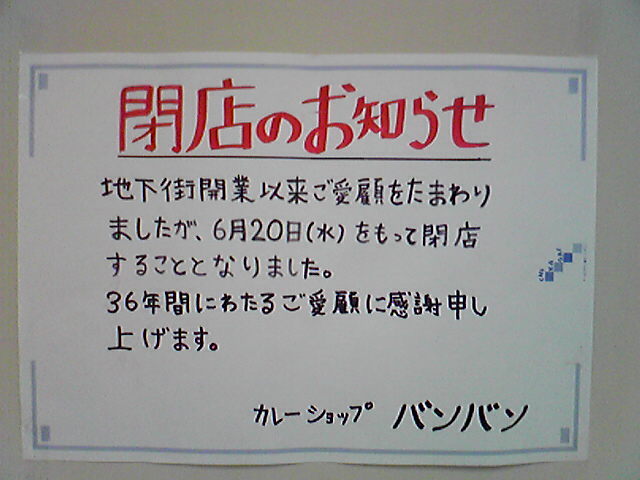 閉店のお知らせ
地下街開業以来ご愛顧をたまわり
ましたが、6月20日(水)をもって閉店
することとなりました。
36年間にわたるご愛顧に感謝申し
上げます。
カレーショップ バンバン